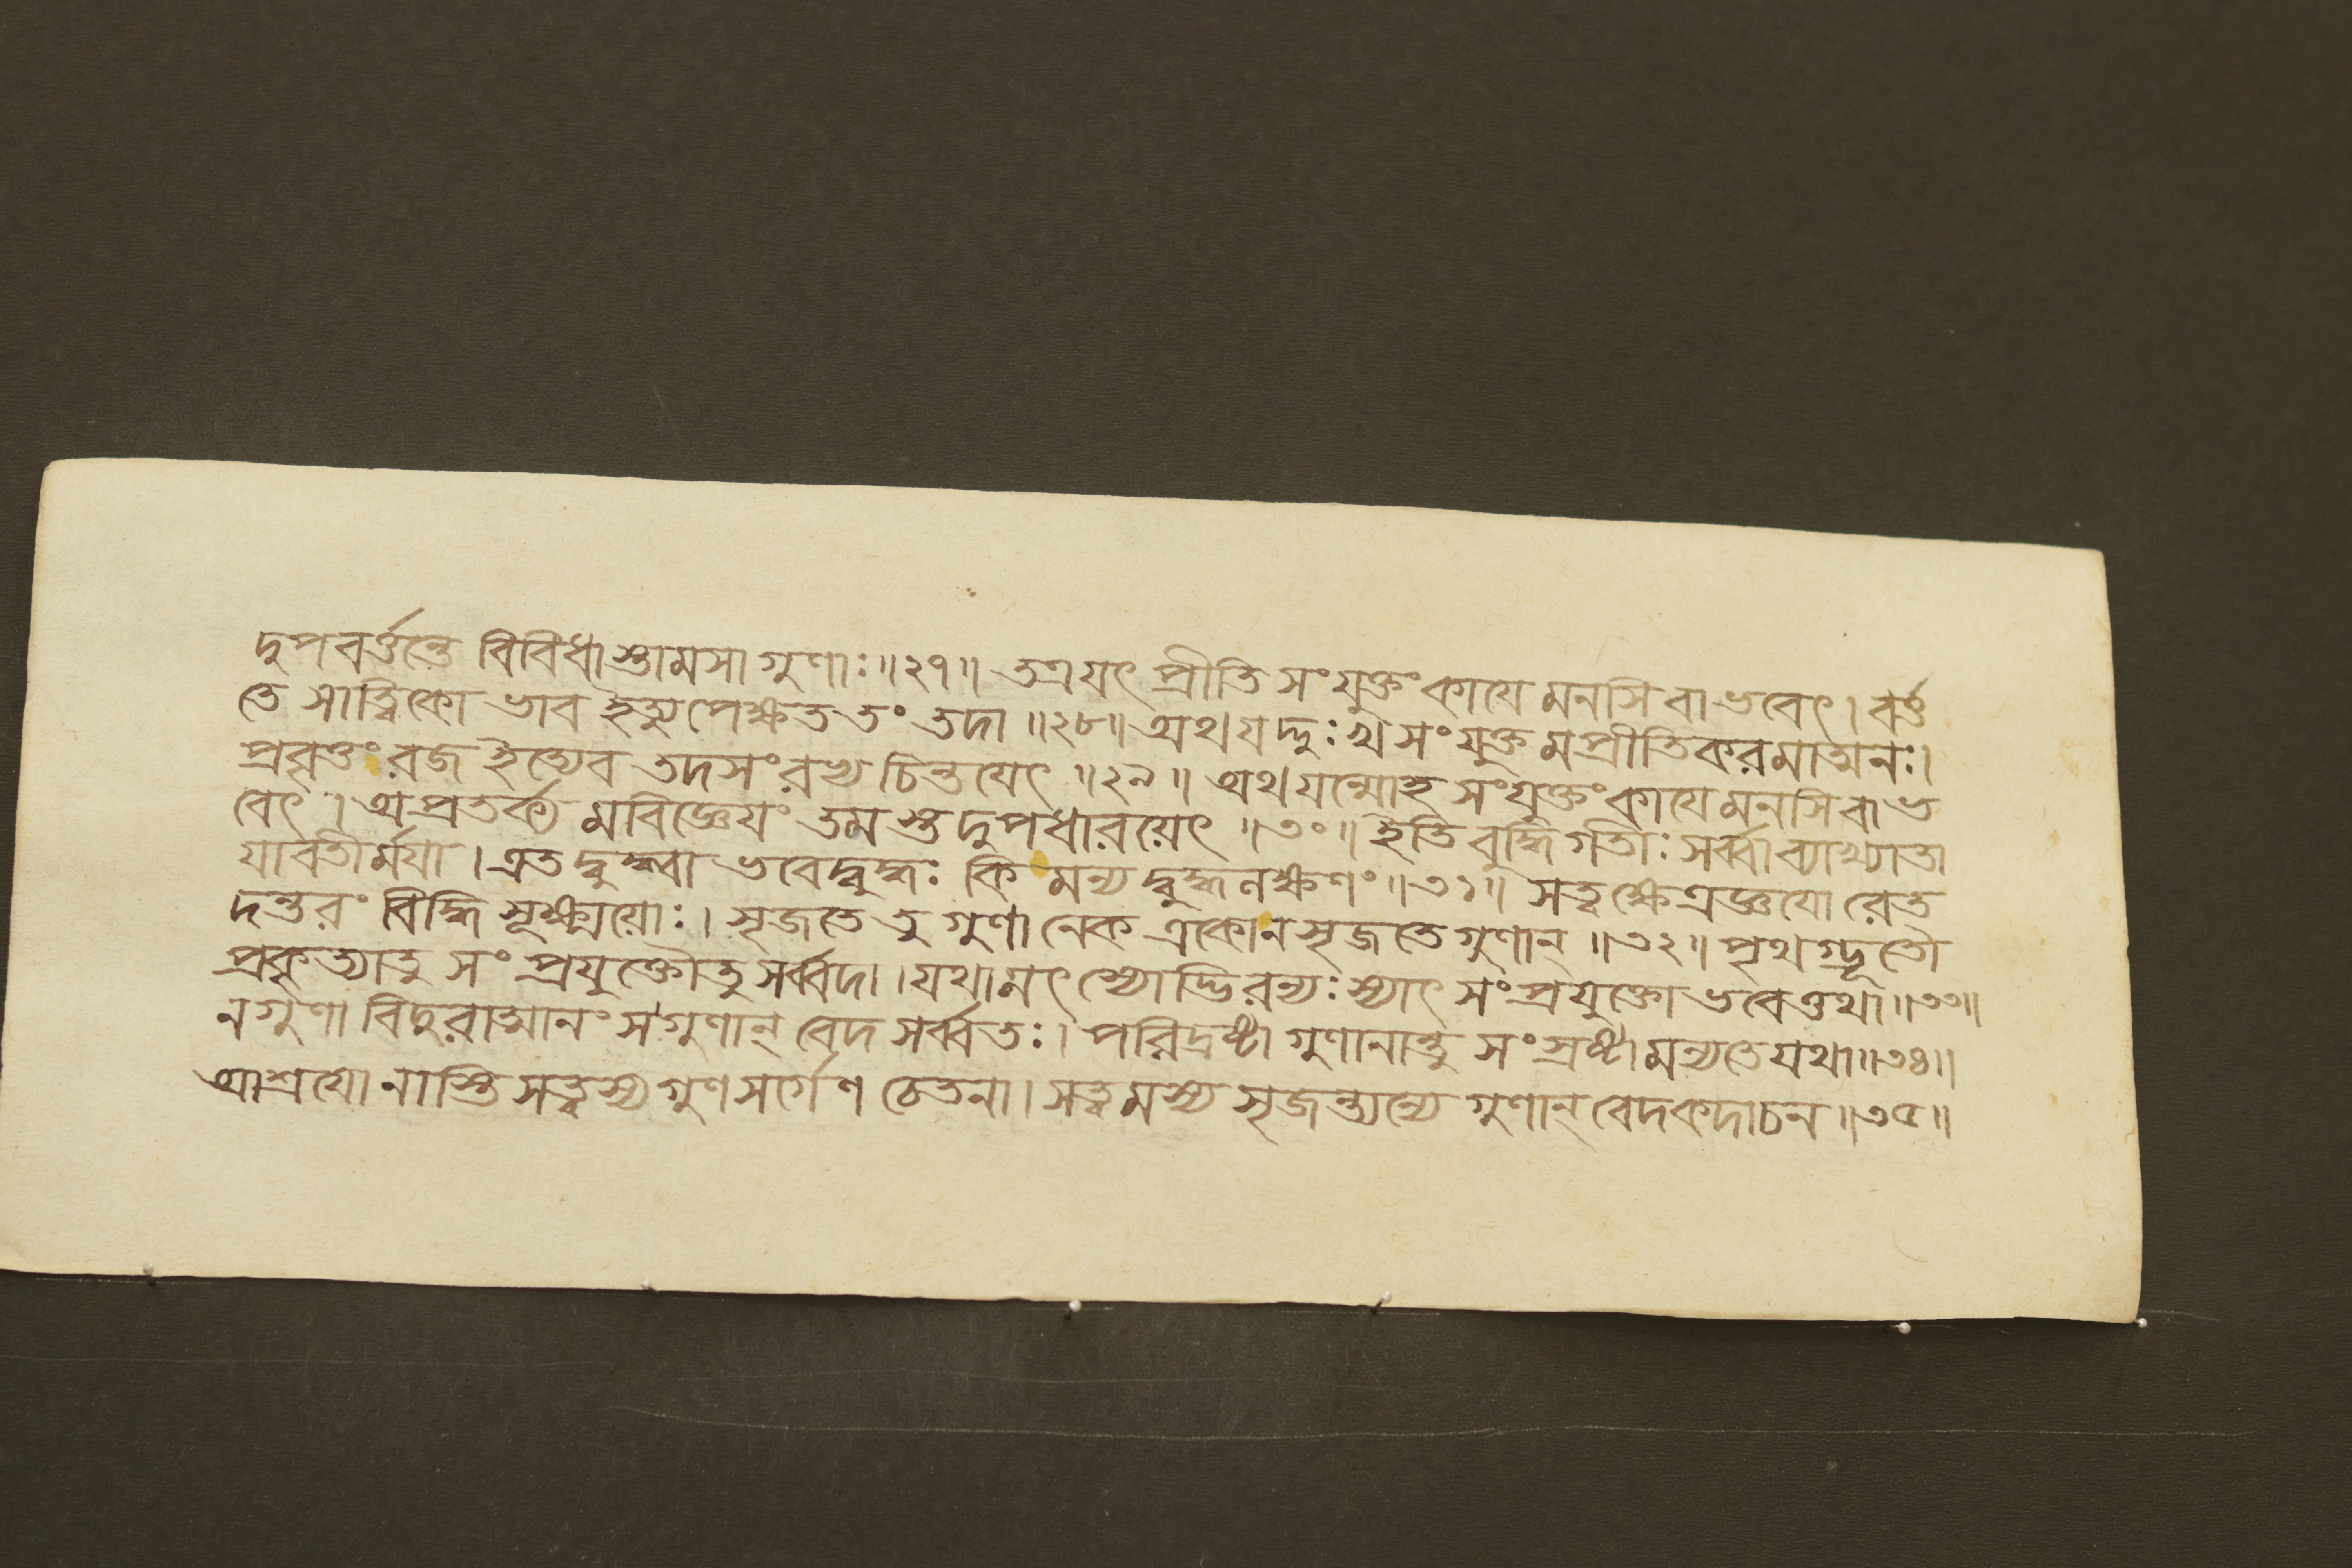 দুপবর্ত্তন্তে বিবিধাস্তামসা গুণাঃ॥২৭॥ তত্রযৎ প্রীতি সংযুক্তংকাযে মনসি বা ভবেৎ। বর্ত্ত
তে সাত্ত্বিকো ভাব ইত্যুপেক্ষত তং তদা॥২৮॥ অথ যদ্দুঃখ সংযুক্ত মপ্রীতিকরমাত্মনঃ।
প্রবৃত্তং রজ ইত্যেব তদসংরভ্য চিন্তযেৎ॥২৯॥ অথ যন্মোহ সংযুক্তংকাযেমনসি বা ভ
বেৎ। অপ্রতর্ক্য মবিজ্ঞেযং তমস্তদুপধারয়েৎ॥৩০॥ ইতি বুদ্ধি গতীঃ সর্ব্বা ব্যাখ্যাতা
যাবতীর্ময়া। এতদ্বুদ্ধ্বা ভবেদ্বুদ্ধঃ কি মন্যদ্বুদ্ধলক্ষণং॥৩১॥ সত্ত্বক্ষেত্রজ্ঞযো রেত
দন্তরং বিদ্ধি সূক্ষ্ময়োঃ। সৃজতে তু গুণা নেক একোনসৃজতে গুণান্॥৩২॥ পৃথগ্ভূতৌ
প্রকৃত্যাতু সংপ্রযুক্তৌতু সর্ব্বদা। যথামৎস্যোদ্ভিরন্যঃ স্যাৎ সংপ্রযুক্তো ভবেত্তথা॥৩৩॥
নগুণা বিদুরাত্মানং সগুণান্ বেদ সর্ব্বতঃ। পরিদ্রষ্টা গুণানান্তু সংস্রষ্টামন্যতেযথা॥৩৪॥
আশ্রযো নাস্তি সত্ত্বস্য গুণসর্গেণ চেতনা। সত্ত্বমস্য সৃজন্ত্যন্যে গুণান্ বেদকদাচন॥৩৫॥